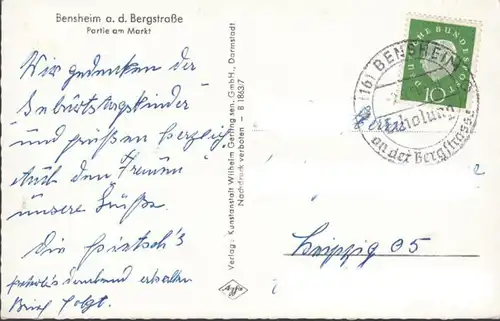 Bensheim a. d. Bergstraße
Partie am Markt
Wir gedenken der
Geburtstagskinder
und grüßen herzlich.
Auch den Freunden
unsere Grüße.
Die Pietsch's
dankend erhalten
Brief folgt.
Verlag: Kunstanstalt Wilhelm Gerling sen. GmbH., Darmstadt
Nachdruck verboten - B 1863/7
Agfa
DEUTSCHE BUNDESPOST
10
(16) BENSHEIM
Erholung
an der Bergstrasse
Leipzig O5
2